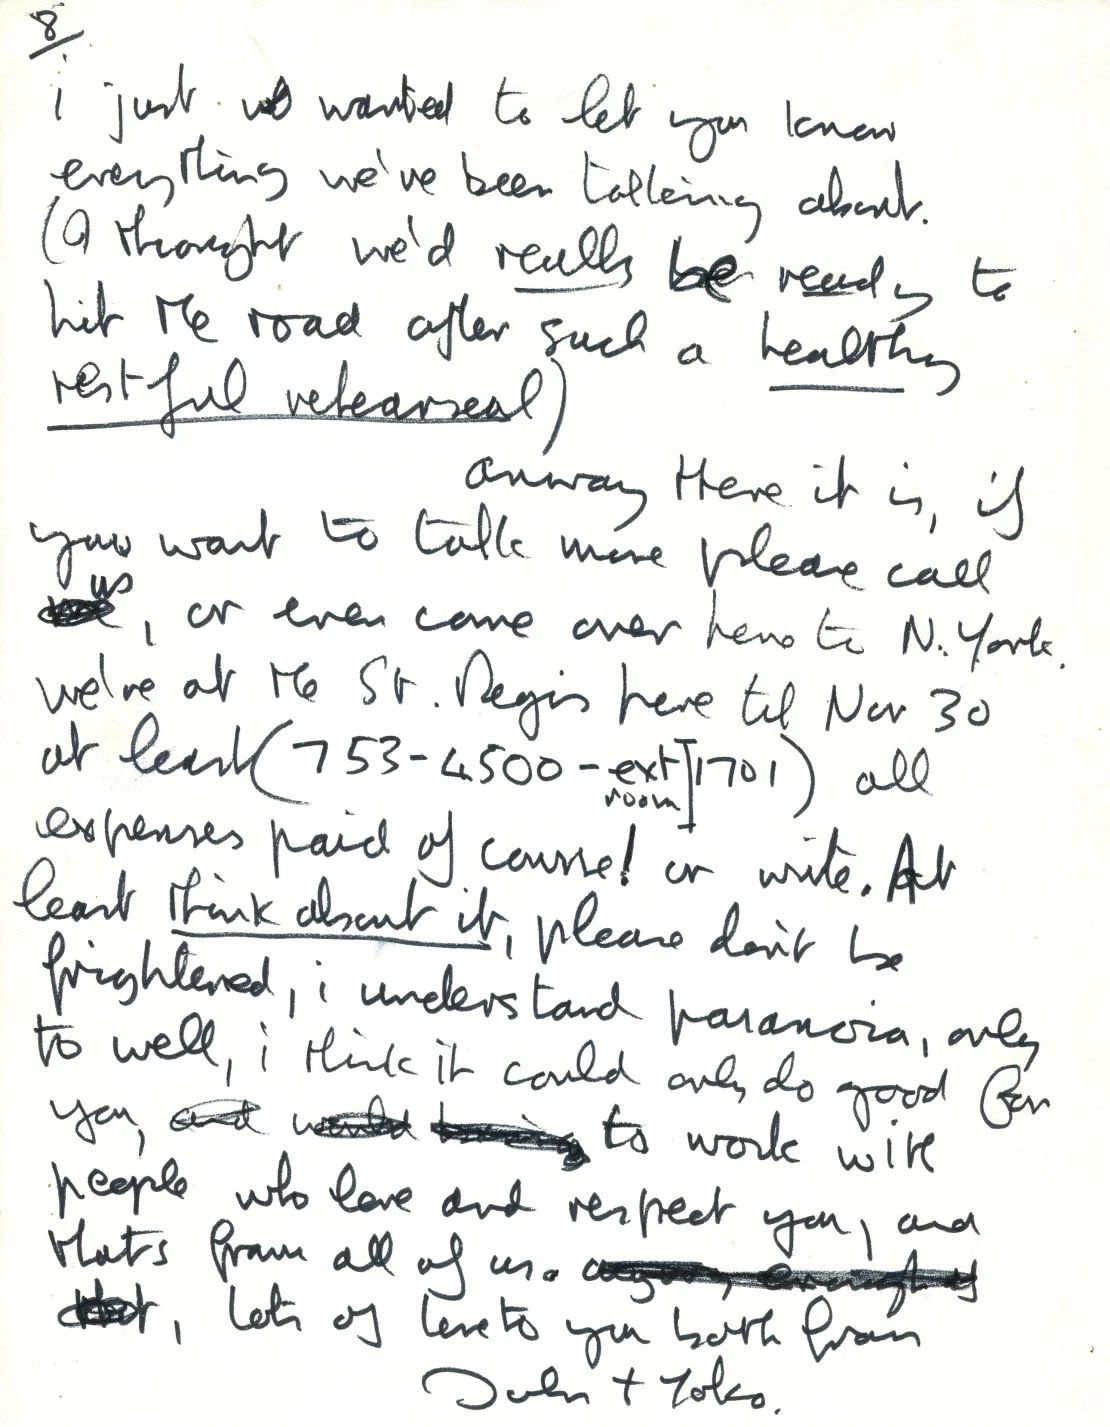 8
i just wanted to let you know
everything we've been talking about.
(I thought we'd really be ready to
hit the road after such a healthy
restful rehearsal)
anway there it is, if
you want to talk more please call
us, or even come over here to N. York.
we're at the St. Regis here til Nov 30
at least (753-4500-ext]1701) all
room
expenses paid of course! or write. At
least think about it, please don't be
frightened, i understand paranoia, only
to well, i think it could only do good for
you, to work with
people who love and respect you, and
that's from all of us.
, lots of love to you both from
John + Yoko.